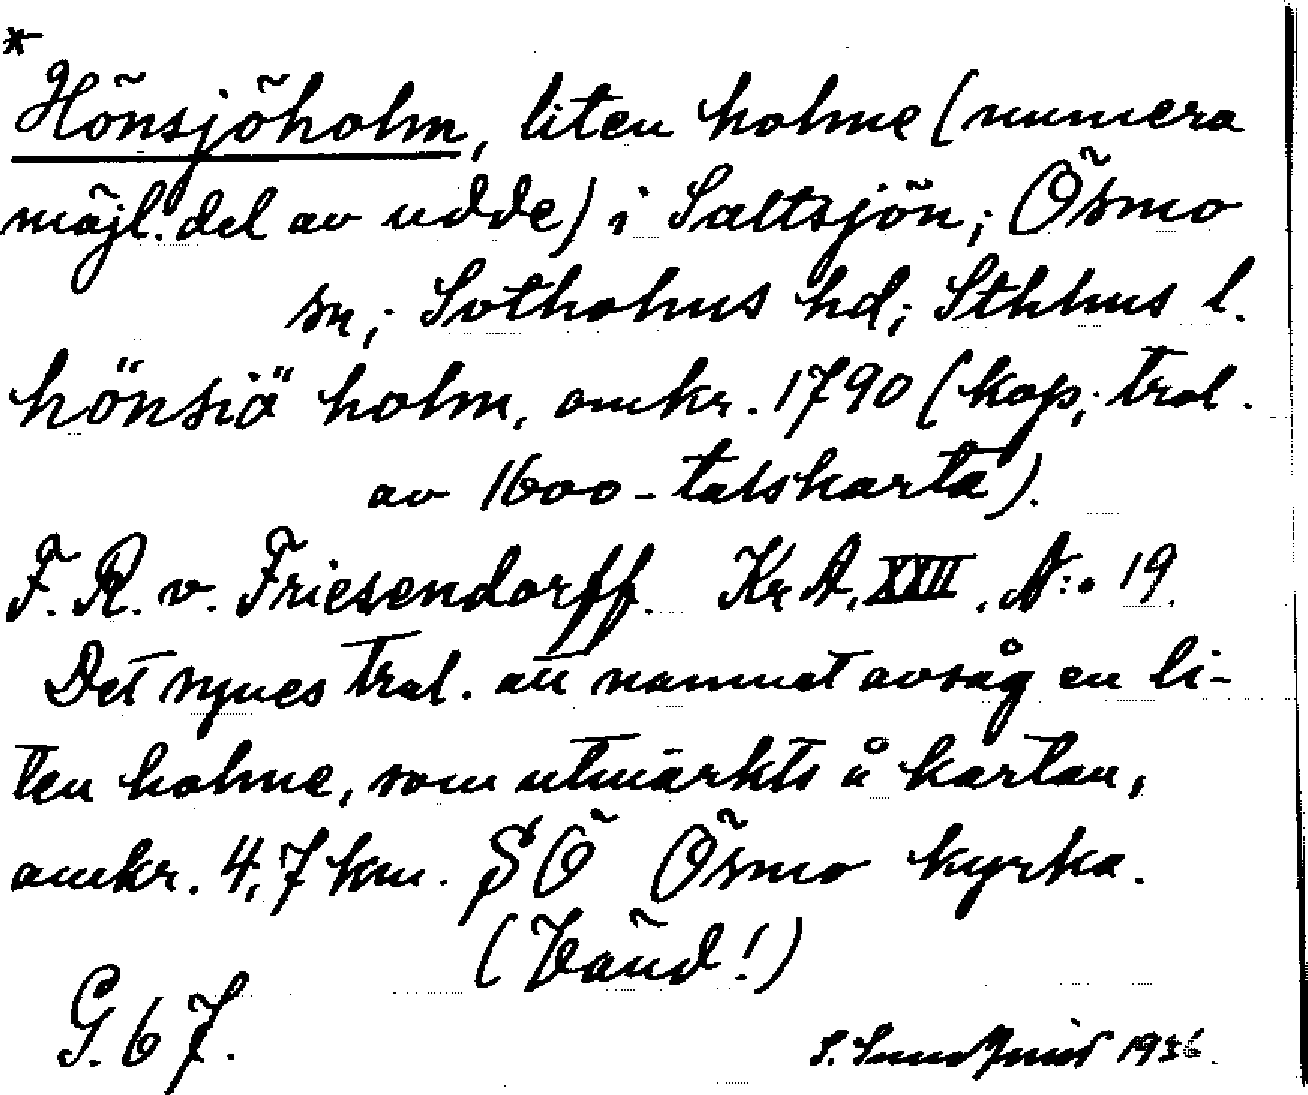 *
Hönsjöholm, liten holme (numera
möjl. del av udde) i Saltsjön; Ösmo
sn; Sotholms hd; Sthlms l.
hönsiö holm, omkr. 1790 (kop; trol.
av 1600-talskarta).
F. R. v. Friesendorff. Kr. A. XXII. N:o 19.
Det synes trol. att namnet avsåg en li-
ten holme, som utmärkts å kartan,
omkr. 4,7 km. SÖ Ösmo kyrka.
(Vänd!)
G. 67.
S. 1936.